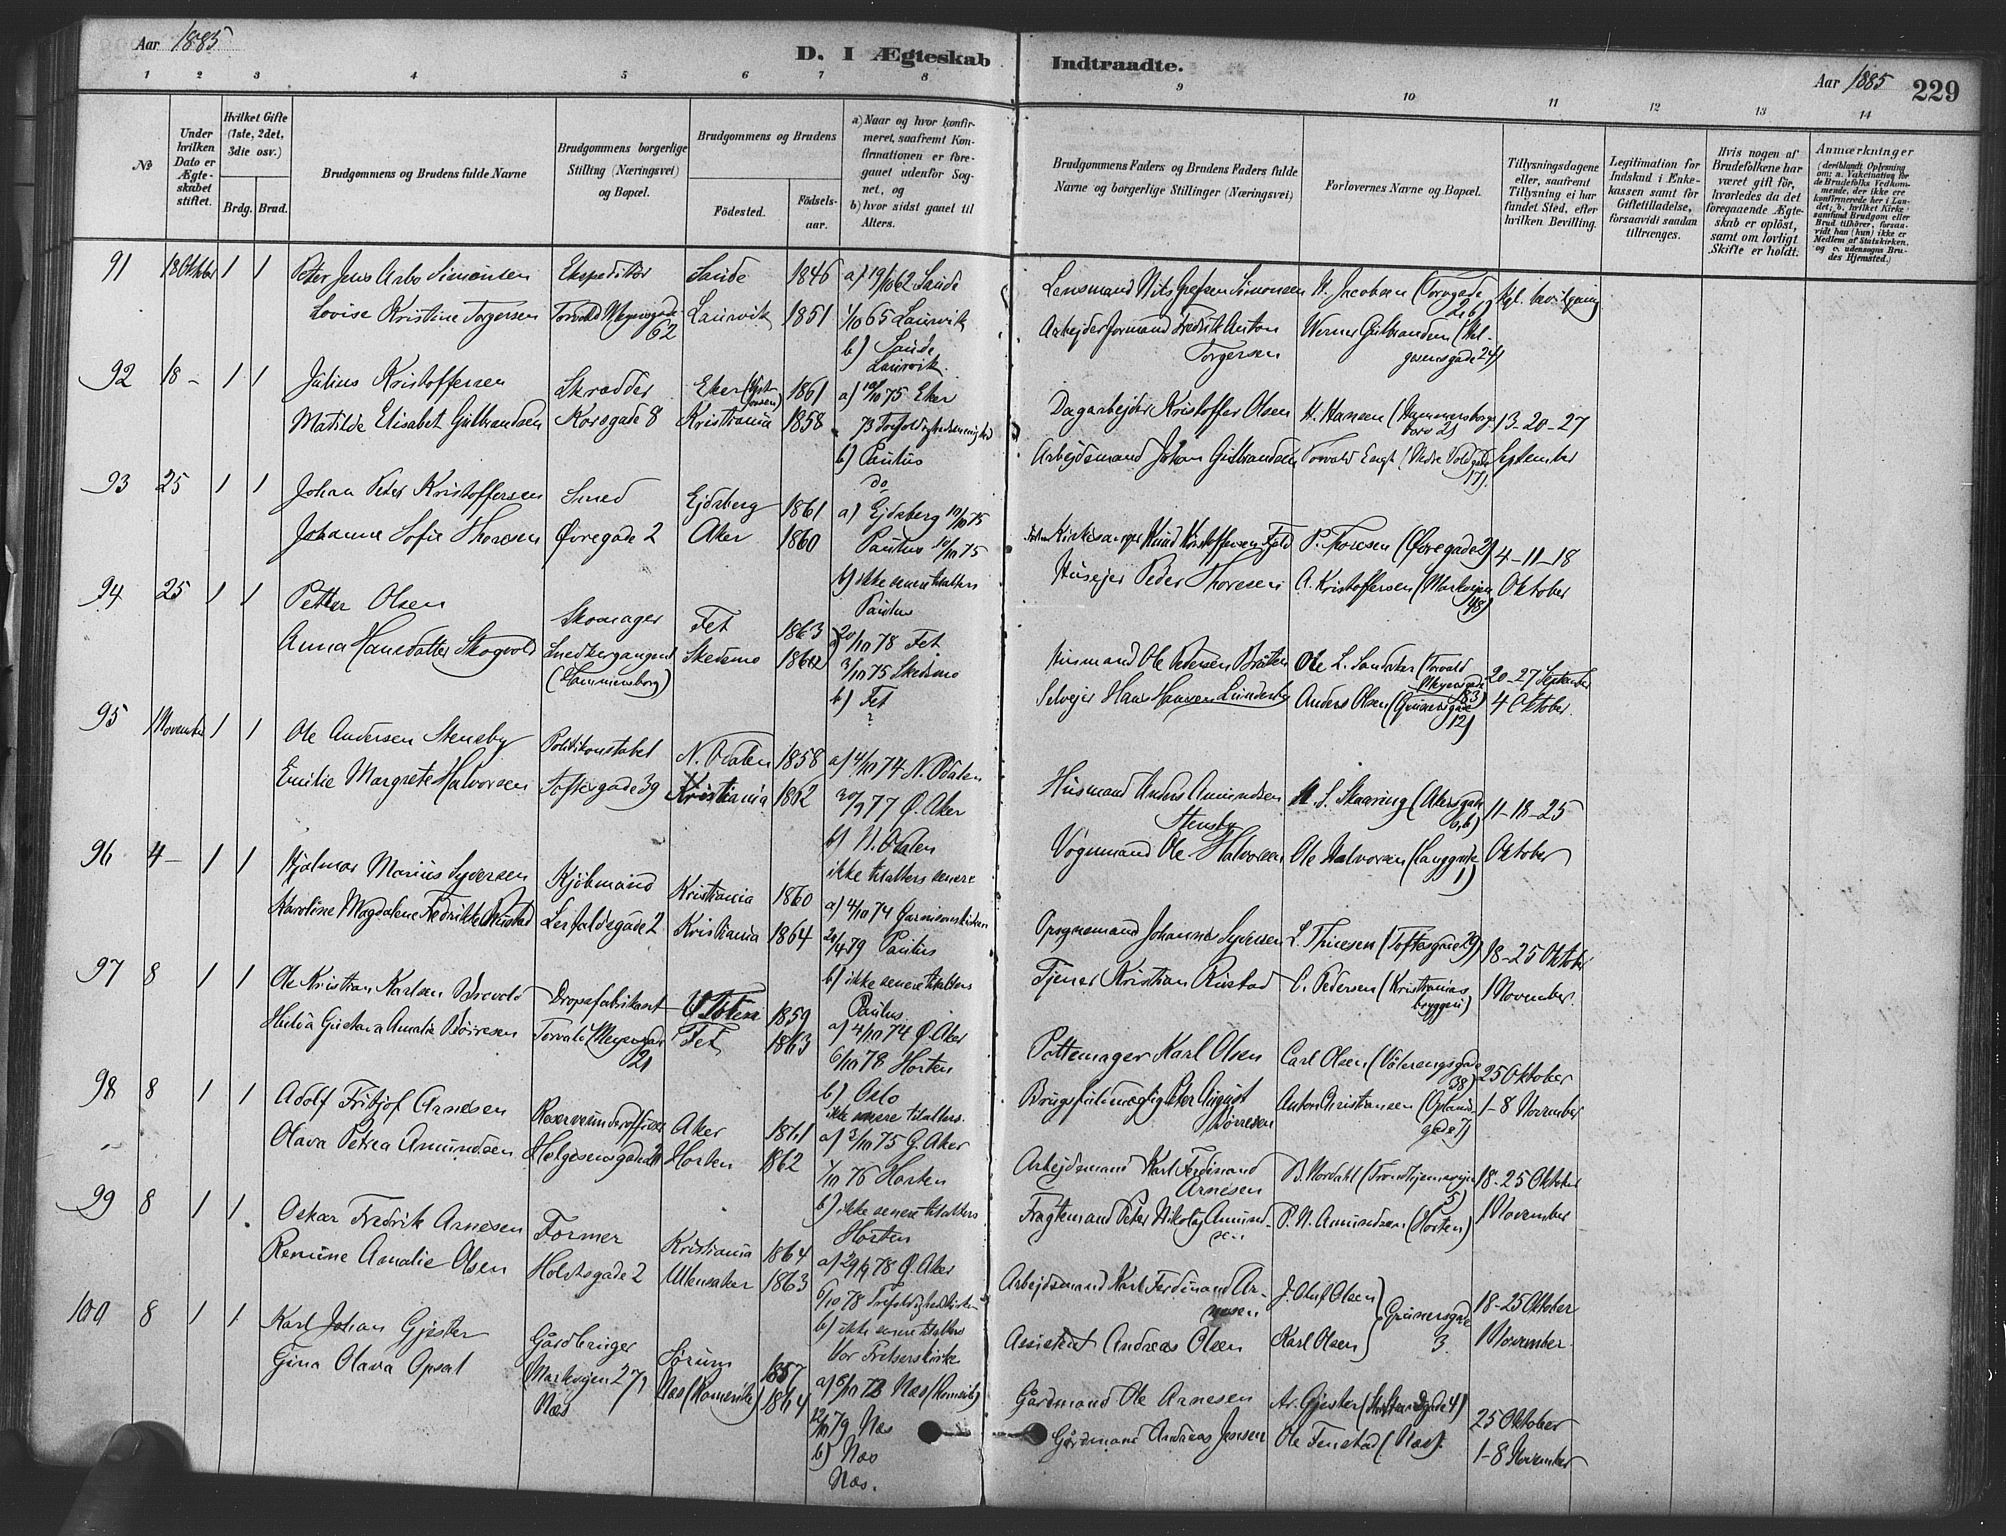 Aar 1885
D. I Ægteskab Indtraadte.
Aar 1885 229
1 2 3 4 5 6 7 8 9 10 11 12 13 14
No
Under hvilken Dato er Ægteskabet stiftet.
Hvilket Gifte (1ste, 2det, 3die osv.)
Brdg. Brud.
Brudgommens og Brudens fulde Navne
Brudgommens borgerlige Stilling (Næringsvei) og Bopæl.
Brudgommens og Brudens
Fødested.
Fødselsaar.
a) Naar og hvor konfirmeret, saafremt Konfirmationen er foregaaet udenfor Sognet, og
b) hvor sidst gaaet til Alters.
Brudgommens Faders og Brudens Faders fulde Navne og borgerlige Stillinger (Næringsvei)
Forlovernes Navne og Bopæl.
Tillysningsdagene eller, saafremt Tillysning ei har fundet Sted, efter hvilken Bevilling.
Legitimation for Indskud i Enkekassen samt for Giftetilladelse, forsaavidt saadan tiltrænges.
Hvis nogen af Brudefolkene har været gift før, hvorledes da det foregaaende Ægteskab er opløst, samt om lovligt Skifte er holdt.
Anmærkninger
91 18 Oktober 1 1 Peter Jens Arbo Simonsen Ekspeditør Sande 1846 a) 19/10 62 Sande Lensmand Simonsen H. Jacobsen (Torvgade 2 b) Kgl. bevilgning
Lovise Kristine Torgersen Torvald Meyersgade 62 Laurvik 1851 1/10 65 Laurvik Arbejderformand Fredrik Anton Torgersen Werner Gulbransen (Helgesensgade 24)
b) Sande
Laurvik.
92 18 - 1 1 Julius Kristoffersen Skrædder Eker 1861 a) 10/10 75 Eker Dagarbejder Kristoffer Olsen H. Hansen (Hammersborg 13-20-27
Matilde Elisabet Gulbrandsen Korsgade 8 Kristiania 1858 73 Trefoldighedsmenighed Arbejdsmand Johan Gulbrandsen Torvald Engh (Nedre Voldgade 17). September
b) Paulus
do
93 25 1 1 Johan Peter Kristoffersen Smed Ejdsberg 1861 a) Ejdsberg 10/10 75 Kirkesanger Knud Kristoffersen P. Thoresen (Øvregade 2) 4-11-18
Johanne Sofie Thoresen Øvregade 2 Aker 1860 Paulus 10/10 75 Husejer Peder Thoresen A. Kristoffersen (Markvejen 48) Oktober
b) ikke senere tilalters
Paulus
94 25 1 1 Petter Olsen Skomager Fet 1863 a) 20/10 78 Fet Husmand Ole Pedersen Bråten Ole L. Sandaker (Torvald Meyersgade 20-27 September
Anna Hansdatter Skogvold (Hammersborg) Skedsmo 3/10 75 Skedsmo Selvejer Hans Hansen Lundesby Anders Olsen (Grünersgade 12) 4 Oktober.
b) Fet
?
95 1 November 1 1 Ole Andersen Stensby Politikonstabel N. Odalen 1858 a) 4/10 74 N. Odalen Husmand Anders Amundsen Stensby M. S. Skaaring (Akersgade 11-18-25
Emilie Margrete Halvorsen Toftesgade 39 Kristiania 1862 30/9 77 Ø. Aker Vognmand Ole Halvorsen Ole Halvorsen (Langgade 1) Oktober
b) N. Odalen
ikke tilalters senere
96 4 - 1 1 Hjalmar Marius Syversen Kjøbmand Kristiania 1860 a) 4/10 74 Garnisonskirken Opsynsmand Johannes Syversen L. Thuesen (Toftesgade 29) 18-25 Oktober
Karoline Magdalene Fredrikke Rustad 2 Kristiania 1864 20/4 79 Paulus Tjener Kristian Rustad C. Pedersen (Kristianias bryggeri) 1 November.
b) ikke senere tilalters
Paulus.
97 8 1 1 Ole Kristian Karlsen Dropsfabrikant V. Toten 1859 a) 4/10 74 Ø. Aker Pottemager Karl Olsen Carl Olsen (Vålerengsgade 38) 25 Oktober
Hulda Gustava Amalie Børresen Torvald Meyersgade 21 Fet 1863 6/10 78 Horten Brugsfuldmægtig Peter August Børresen Anton Christiansen (Oplandsgade 7) 1-8 November
b) Oslo
ikke senere tilalters.
98 8 1 1 Adolf Fritjof Arnesen Reserveunderofficer Aker 1861 a) 3/10 75 G. Aker Arbejdsmand Karl Ferdinand Arnesen B. Nordahl (Trondhjemsvejen 5) 18-25 Oktober
Olava Petrea Amundsen Helgesensgade 21 Horten 1862 1/10 76 Horten Fragtemand Peter Nikolaj Amundsen P. N. Amundsen (Horten) 1 November
b) ikke senere tilalters
Horten
99 8 1 1 Oskar Fredrik Arnesen Former Kristiania 1864 a) 29/9 78 Ø. Aker Arbejdsmand Karl Ferdinand Arnesen J. Oluf Olsen 18-25 Oktober
Remine Amalie Olsen Holstsgade 2 Ullensaker 1863 6/10 78 Trefoldighedskirken Assistent Andreas Olsen Karl Olsen } Grünersgade 3. 1 November.
b) ikke senere tilalters
Vor Frelserskirke
100 8 1 1 Karl Johan Gjester Gårdbruger Sørum 1857 a) 6/10 72 Næs (Romerike) Gårdmand Ole Arnesen Ar. Gjester 25 Oktober
Gina Olava Opsal Markvejen 27, Næs Næs (Romerike) 1864 12/10 79 Næs Gårdmand Andreas Jensen Ole Fenstad (Næs). 1-8 November
b) Næs
Næs.